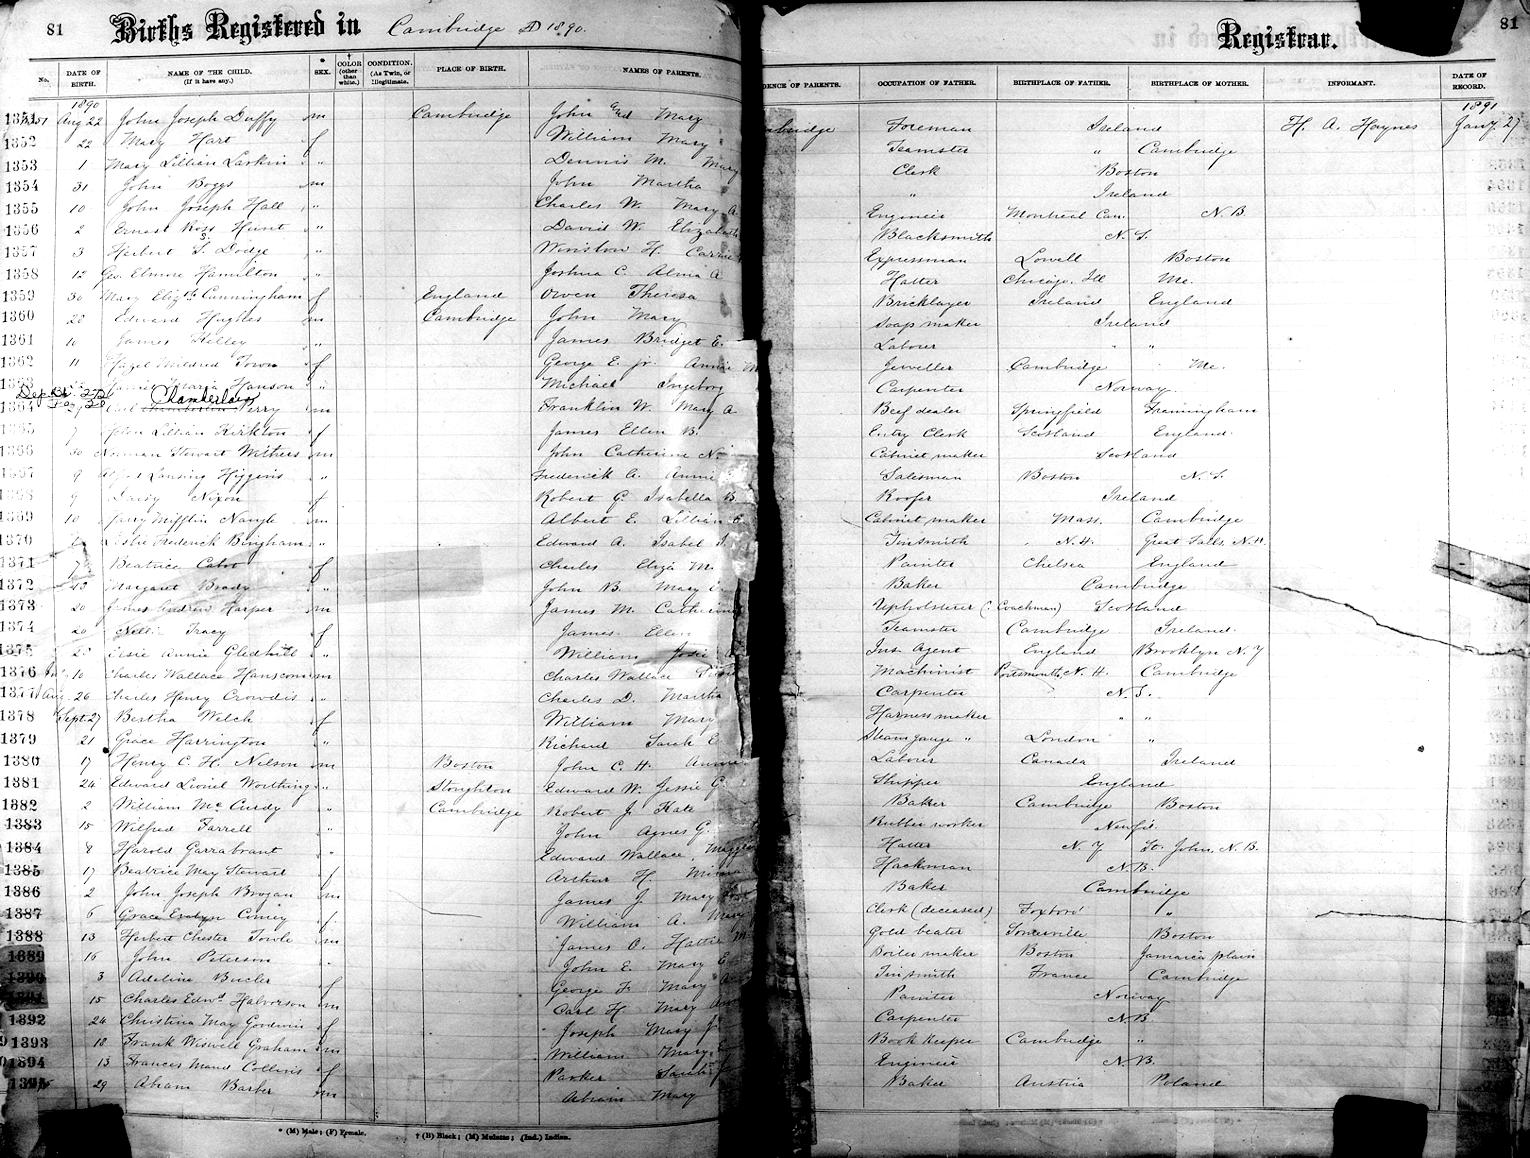 81 Births Registered in Cambridge AD 1890. Registrar. 81
No. DATE OF BIRTH. NAME OF THE CHILD. (If it have any.) SEX. COLOR (other than white.) CONDITION. (As Twin, or Illegitimate.) PLACE OF BIRTH. NAMES OF PARENTS. DENCE OF PARENTS. OCCUPATION OF FATHER. BIRTHPLACE OF FATHER. BIRTHPLACE OF MOTHER. INFORMANT. DATE OF RECORD.
1890 1891
1351 Aug 22 John Joseph Duffy m Cambridge John and Mary Foreman Ireland H. A. Haynes Jany. 27
1352 22 Mary Hart f William Mary Teamster " Cambridge
1353 1 Mary Lillian Larkin " Dennis M. Mary Clerk Boston
1354 31 John Boggs m John Martha " Ireland
1355 10 John Joseph Hall " Charles W. Mary A. Engineer Montreal Can. N.B.
1356 2 Ernest Ross Hunt " David W. Elizabeth Blacksmith N.S.
1357 3 Herbert S. Dodge " Winslow H. Carrie Expressman Lowell Boston
1358 12 Geo. Elmore Hamilton " Joshua C. Alma A Hatter Chicago, Ill Me.
1359 30 Mary Elizth. Cunningham f England Owen Theresa Bricklayer Ireland England
1360 20 Edward Hughes m Cambridge John Mary Soap maker Ireland
1361 10 James Kelley " James Bridget E. Laborer " "
1362 11 Hazel Mildred Town f George E. jr. Annie M Jeweller Cambridge Me.
Maria Hanson " Michael Ingeborg Carpenter Norway
Chamberlain
1364 27 Carl Perry m Franklin W. Mary A Beef dealer Springfield Framingham
7 Lillian Kirkton f James Ellen B. Entry Clerk Scotland England
1366 30 Norman Stewart Withers m John Catherine N. Cabinet maker Scotland
9 Lansing Higgins " Frederick A. Annie Salesman Boston N.S.
9 Daisy Nixon f Robert G. Isabella B. Roofer Ireland
1369 10 Harry Mifflin Nangle m Albert E. Lillian E. Cabinet maker Mass. Cambridge
1370 Leslie Frederick Bingham " Edward A. Isabel Tinsmith N.H. Great Falls, N.H.
1371 7 Beatrice Cabot f Charles Eliza M. Painter Chelsea England
1372 Margaret Brady " John B. Mary Baker Cambridge
1373 20 James Andrew Harper m James M. Catherine Upholsterer (Coachman) Scotland
1374 20 Nellie Tracy f James Ellen Teamster Cambridge Ireland.
1375 Elsie Annie Gledhill " William Josie Ins. Agent England Brooklyn N.Y
1376 10 Charles Wallace Hanscom m Charles Wallace Machinist Portsmouth, N.H. Cambridge
1377 Aug. 26 Charles Henry Crowdis " Charles D. Martha Carpenter N.S.
1378 Sept. 27 Bertha Welch f William Mary Harness maker " "
1379 21 Grace Harrington " Richard Sarah E Steam gauge " London "
1380 17 Henry C. H. Nelson m Boston John C. H. Annie Laborer Canada Ireland
1381 24 Edward Lionel Worthing " Stoughton Edward W. Jessie G. Shipper England
1382 2 William McCurdy " Cambridge Robert J. Kate Baker Cambridge Boston
1383 15 Wilfred Farrell " John Agnes G. Rubber worker Newf'd.
1384 8 Harold Garrabrant " Edward Wallace, Maggie Hatter N.Y St. John, N.B.
1385 17 Beatrice May Stewart f Arthur H. Minnie Hackman N.B.
1386 2 John Joseph Brogan m James J. Mary Baker Cambridge
1387 6 Grace Evelyn Comey f William A. Mary Clerk (deceased) Foxboro' "
1388 13 Herbert Chester Towle m James O. Hattie M Gold beater Somerville Boston
1389 16 John Peterson " John E. Mary E Boiler maker Boston Jamaica plain
1390 3 Adeline Bucler f George F. Mary Tinsmith France Cambridge
1391 15 Charles Edwd. Halvorson m Carl H. Mary Painter Norway
1392 24 Christina May Goodwin f Joseph Mary J. Carpenter N.B.
1393 18 Frank Wiswell Graham m William Mary Book Keeper Cambridge "
1894 13 Frances Maud Collins f Parker Sarah Engineer N.B.
1395 29 Abram Barber m Abram Mary Baker Austria Poland
* (M) Male; (F) Female. † (B) Black; (M) Mulatto; (Ind.) Indian.